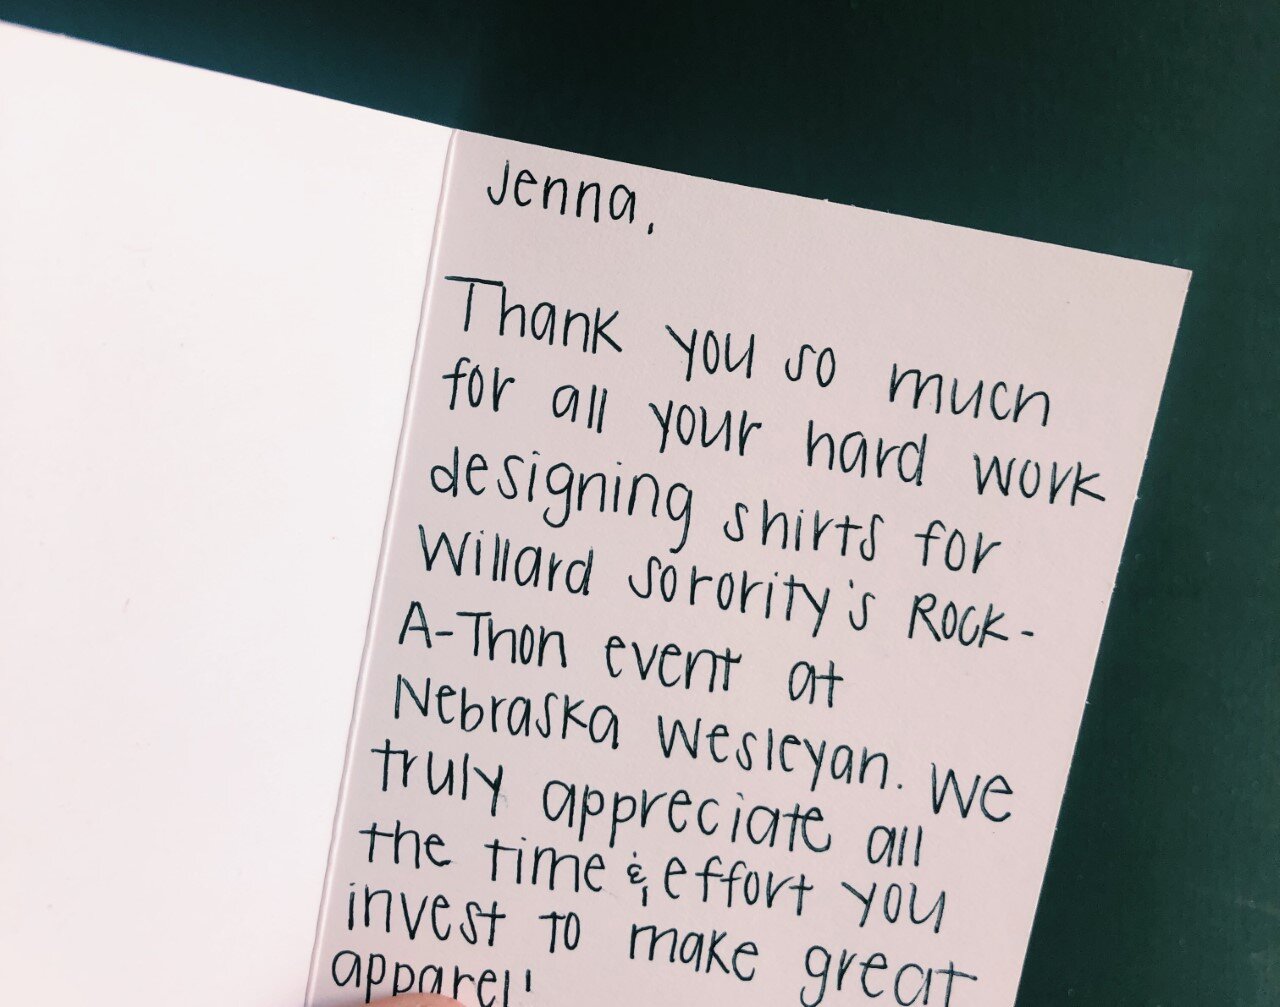 Jenna,
Thank you so much
for all your hard work
designing shirts for
Willard Sorority's Rock-
A-Thon event at
Nebraska Wesleyan. We
truly appreciate all
the time & effort you
invest to make great
apparel!